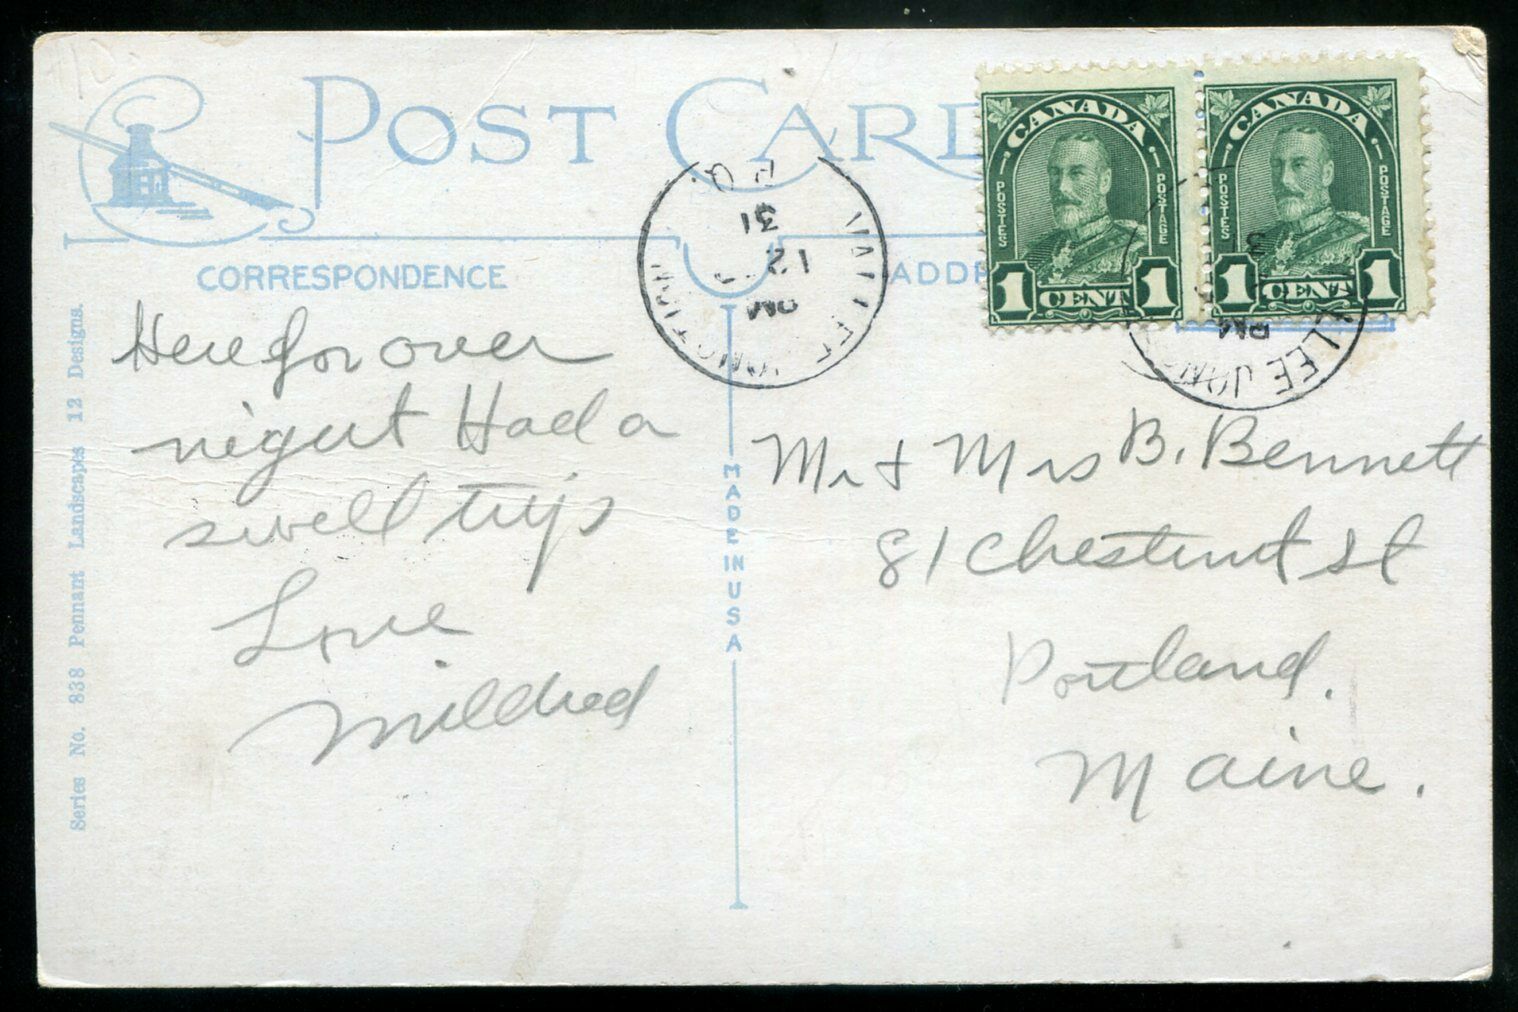 POST CARD
CORRESPONDENCE
Here for over
night Had a
swell trip
Love
Mildred
Series No. 838 Pennant Landscapes 12 Designs.
MADE IN USA
VALLEE JONCTION
P.Q.
PM
12
31
CANADA
POSTES
POSTAGE
1 CENT 1
CANADA
POSTES
POSTAGE
1 CENT 1
PM
LEE JON
Mr & Mrs B. Bennett
81 Chestnut St
Portland.
Maine.